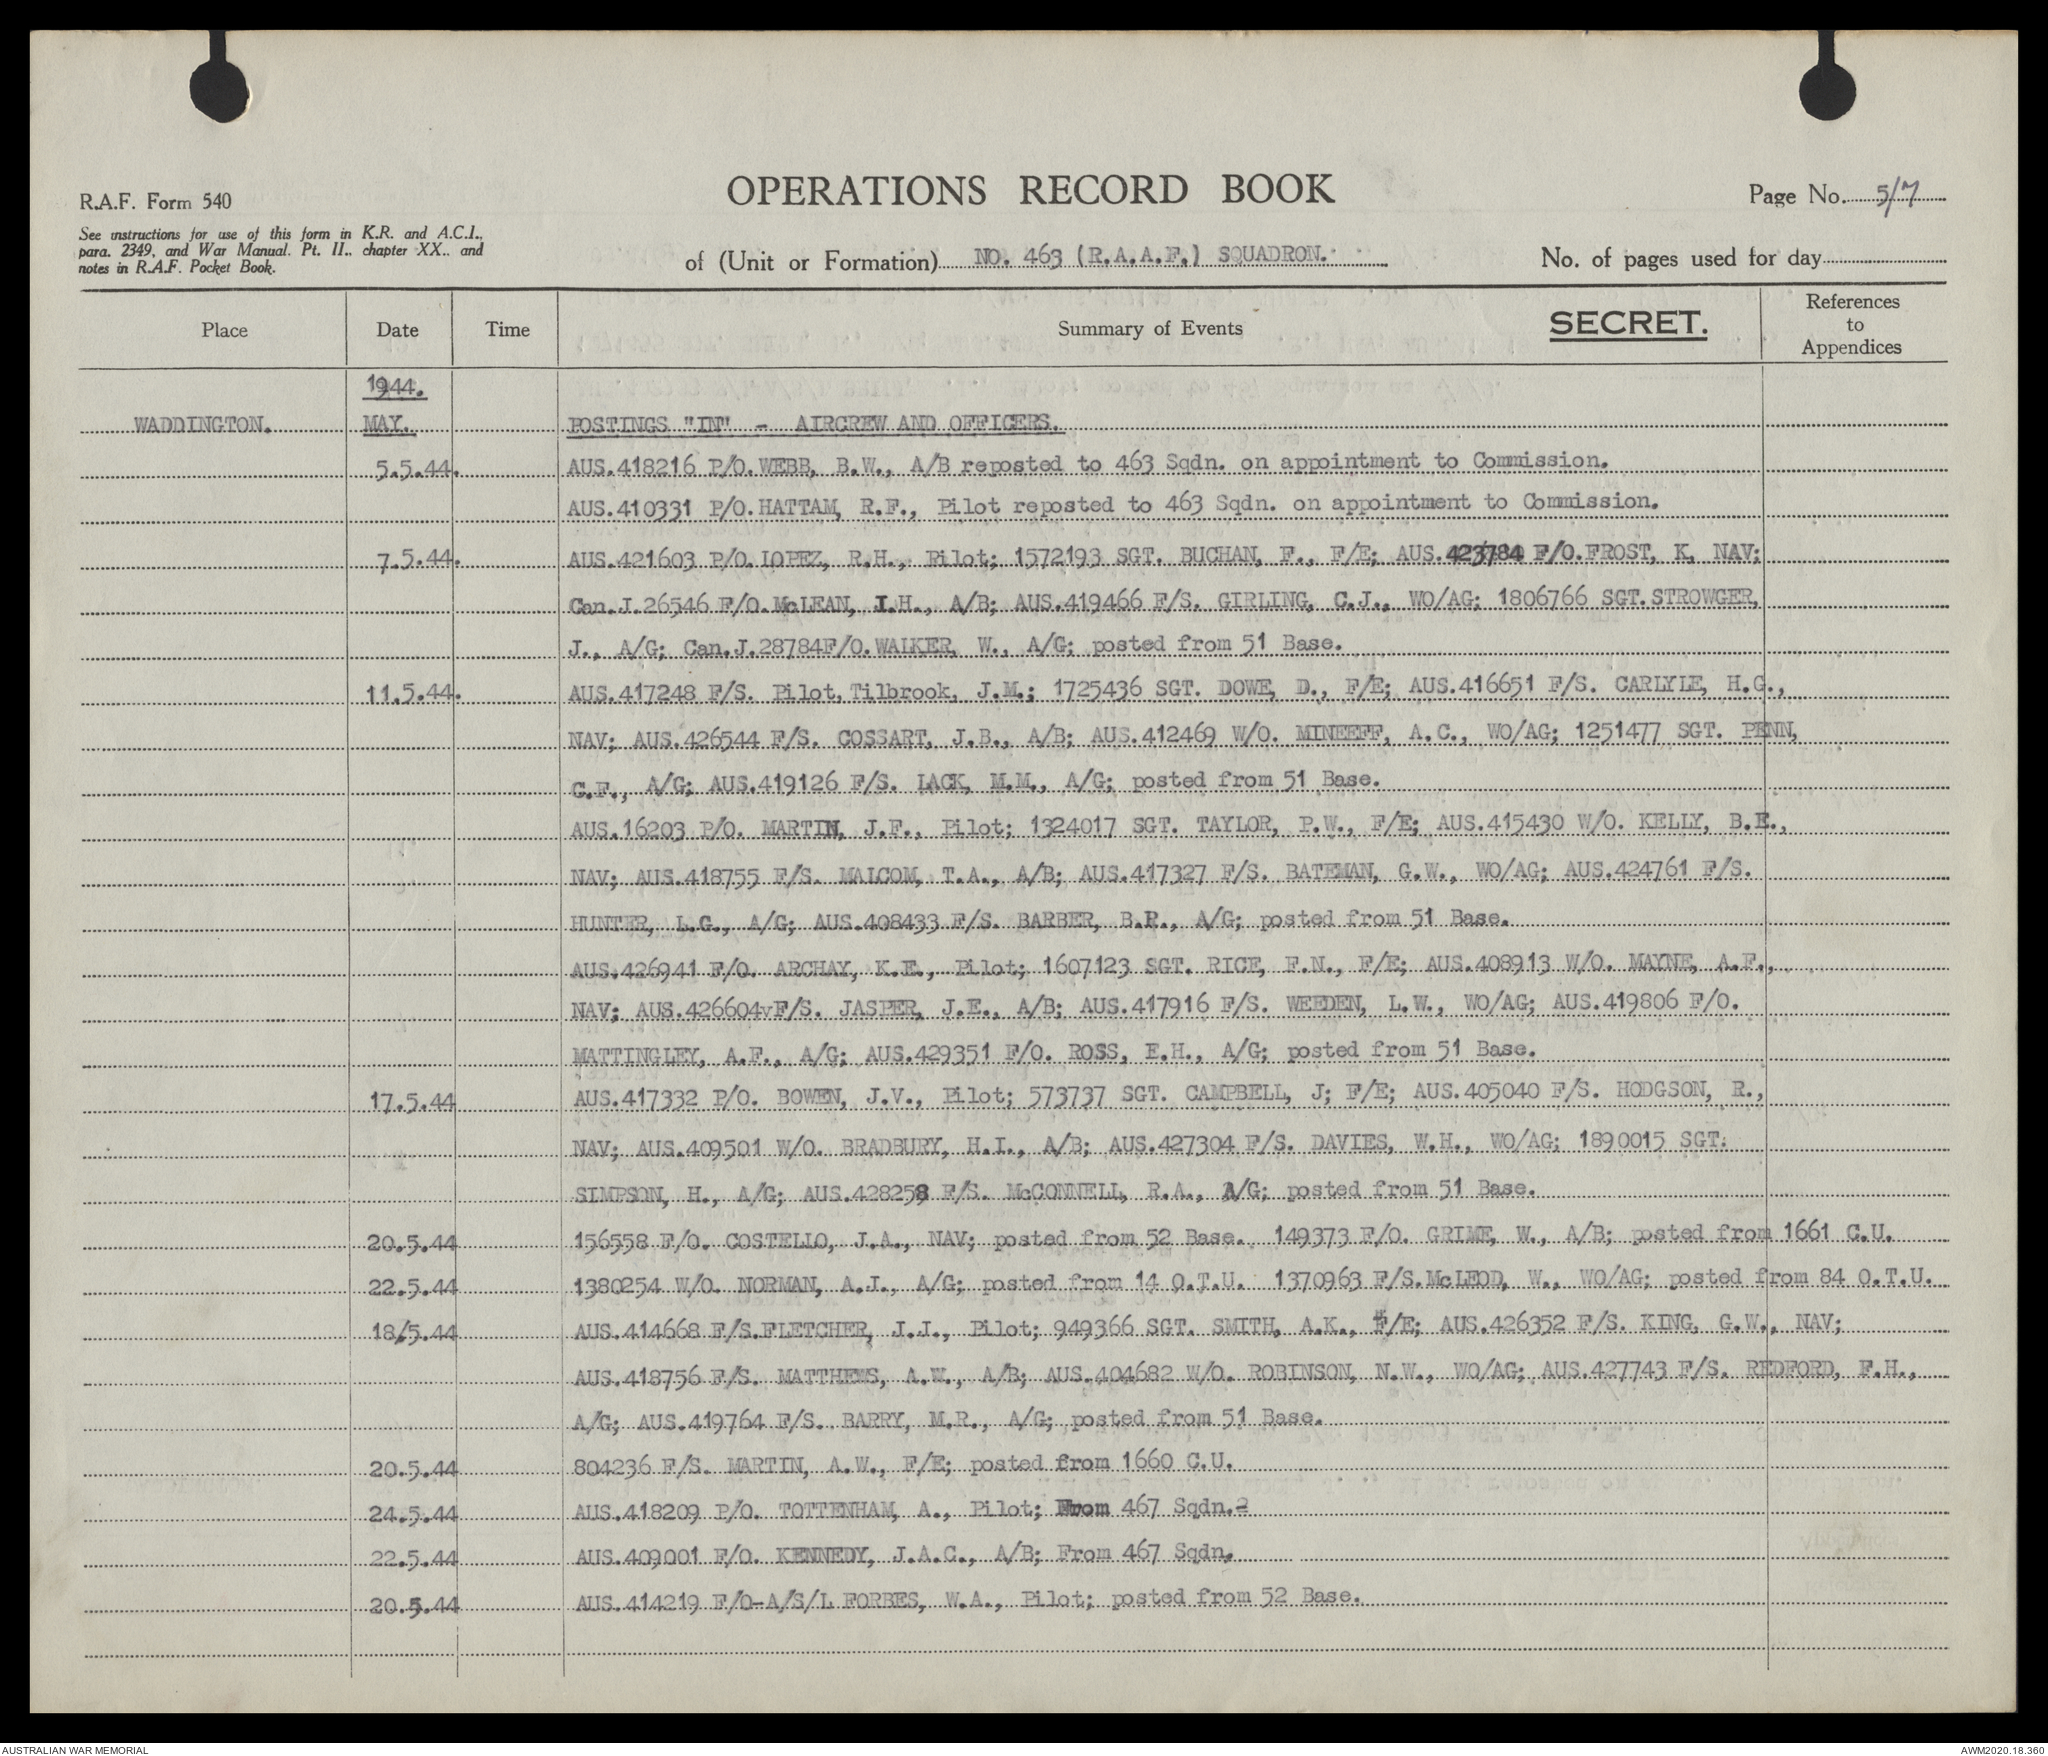 R.A.F. Form 540
See instructions for use of this form in K.R. and A.C.I.,
para. 2349, and War Manual. Pt. II., chapter XX., and
notes in R.A.F. Pocket Book.
OPERATIONS RECORD BOOK
Page No. 5/7
of (Unit or Formation) NO. 463 (R.A.A.F.) SQUADRON.
No. of pages used for day
Place Date Time Summary of Events SECRET. References to Appendices
1944.
WADDINGTON. MAY. POSTINGS "IN" - AIRCREW AND OFFICERS.
5.5.44. AUS.418216 P/O. WEBB, B.W., A/B reposted to 463 Sqdn. on appointment to Commission.
AUS.410331 P/O. HATTAM, R.F., Pilot reposted to 463 Sqdn. on appointment to Commission.
7.5.44. AUS.421603 P/O. LOPEZ, R.H., Pilot; 1572193 SGT. BUCHAN, F., F/E; AUS.423784 F/O. FROST, K, NAV;
Can.J.26546 F/O. McLEAN, I.H., A/B; AUS.419466 F/S. GIRLING, C.J., WO/AG; 1806766 SGT. STROWGER,
J., A/G; Can.J.28784F/O. WALKER, W., A/G; posted from 51 Base.
11.5.44. AUS.417248 F/S. Pilot, Tilbrook, J.M.; 1725436 SGT. DOWE, D., F/E; AUS.416651 F/S. CARLYLE, H.G.,
NAV; AUS.426544 F/S. COSSART, J.B., A/B; AUS.412469 W/O. MINEEFF, A.C., WO/AG; 1251477 SGT. PENN,
C.F., A/G; AUS.419126 F/S. LACK, M.M., A/G; posted from 51 Base.
AUS.16203 P/O. MARTIN, J.F., Pilot; 1324017 SGT. TAYLOR, P.W., F/E; AUS.415430 W/O. KELLY, B.E.,
NAV; AUS.418755 F/S. MALCOM, T.A., A/B; AUS.417327 F/S. BATEMAN, G.W., WO/AG; AUS.424761 F/S.
HUNTER, L.G., A/G; AUS.408433 F/S. BARBER, B.R., A/G; posted from 51 Base.
AUS.426941 F/O. ARCHAY, K.E., Pilot; 1607123 SGT. RICE, F.N., F/E; AUS.408913 W/O. MAYNE, A.F.,
NAV; AUS.426604vF/S. JASPER, J.E., A/B; AUS.417916 F/S. WEEDEN, L.W., WO/AG; AUS.419806 F/O.
MATTINGLEY, A.F., A/G; AUS.429351 F/O. ROSS, E.H., A/G; posted from 51 Base.
17.5.44 AUS.417332 P/O. BOWEN, J.V., Pilot; 573737 SGT. CAMPBELL, J; F/E; AUS.405040 F/S. HODGSON, R.,
NAV; AUS.409501 W/O. BRADBURY, H.I., A/B; AUS.427304 F/S. DAVIES, W.H., WO/AG; 1890015 SGT.
SIMPSON, H., A/G; AUS.428258 F/S. McCONNELL, R.A., A/G; posted from 51 Base.
20.5.44 156558 F/O. COSTELLO, J.A., NAV; posted from 52 Base. 149373 F/O. GRIME, W., A/B; posted from 1661 C.U.
22.5.44 1380254 W/O. NORMAN, A.J., A/G; posted from 14 O.T.U. 1370963 F/S. McLEOD, W., WO/AG; posted from 84 O.T.U.
18/5.44 AUS.414668 F/S. FLETCHER, J.I., Pilot; 949366 SGT. SMITH, A.K., F/E; AUS.426352 F/S. KING, G.W., NAV;
AUS.418756 F/S. MATTHEWS, A.W., A/B; AUS.404682 W/O. ROBINSON, N.W., WO/AG; AUS.427743 F/S. REDFORD, F.H.,
A/G; AUS.419764 F/S. BARRY, M.R., A/G; posted from 51 Base.
20.5.44 804236 F/S. MARTIN, A.W., F/E; posted from 1660 C.U.
24.5.44 AUS.418209 P/O. TOTTENHAM, A., Pilot; From 467 Sqdn.
22.5.44 AUS.409001 F/O. KENNEDY, J.A.C., A/B; From 467 Sqdn.
20.5.44 AUS.414219 F/O-A/S/L FORBES, W.A., Pilot; posted from 52 Base.
AUSTRALIAN WAR MEMORIAL
AWM2020.18.360